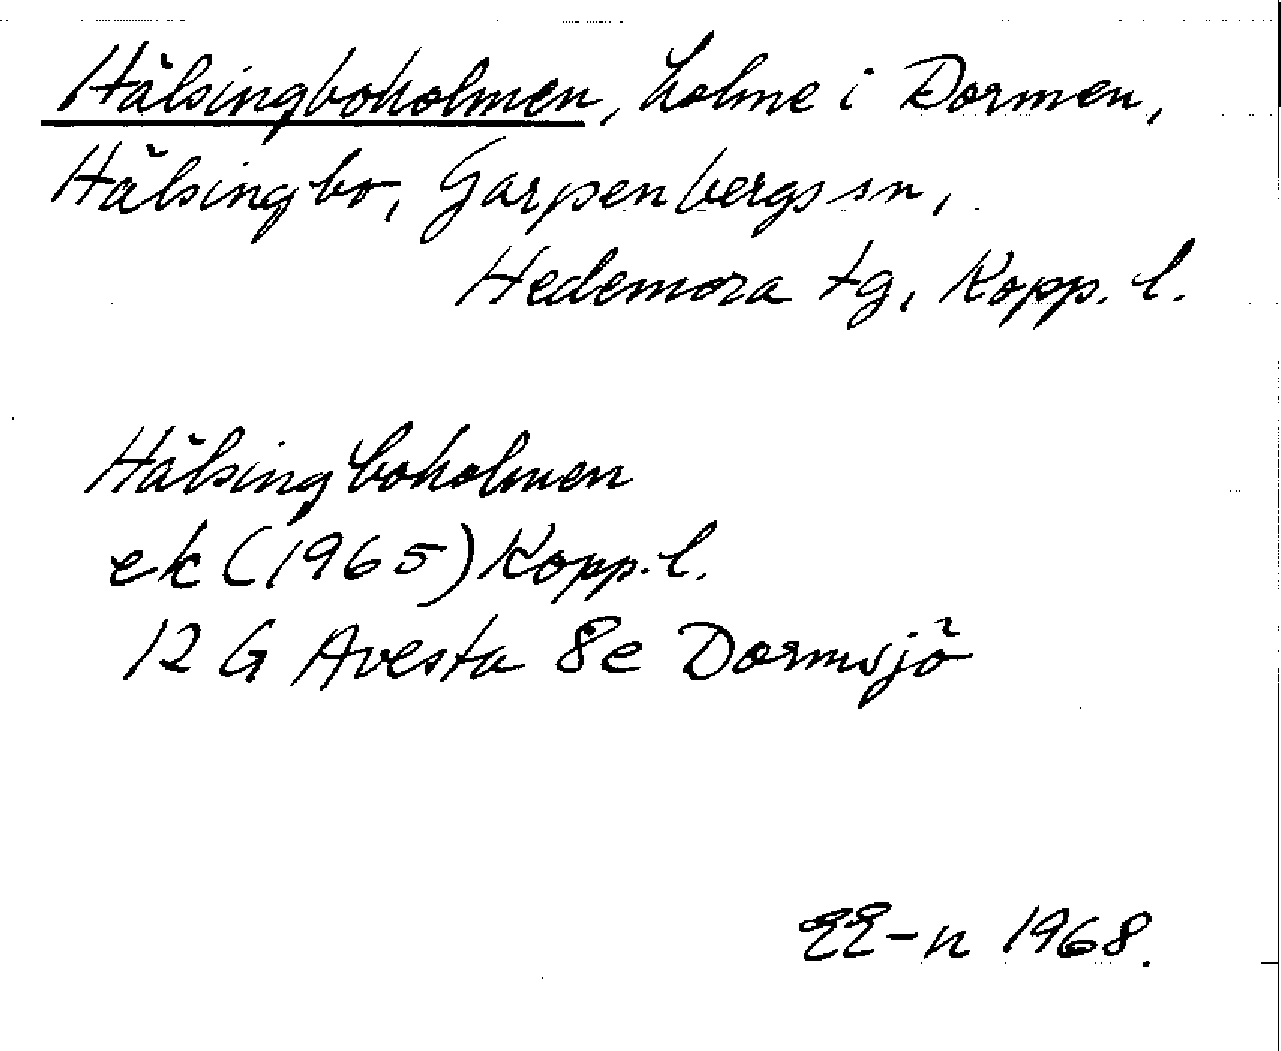 Hälsingboholmen, holme i Dormen,
Hälsingbo, Garpenbergs sn,
Hedemora tg, Kopp. l.
Hälsingboholmen
ek (1965) Kopp. l.
12 G Avesta 8e Dormsjö
EE-n 1968.